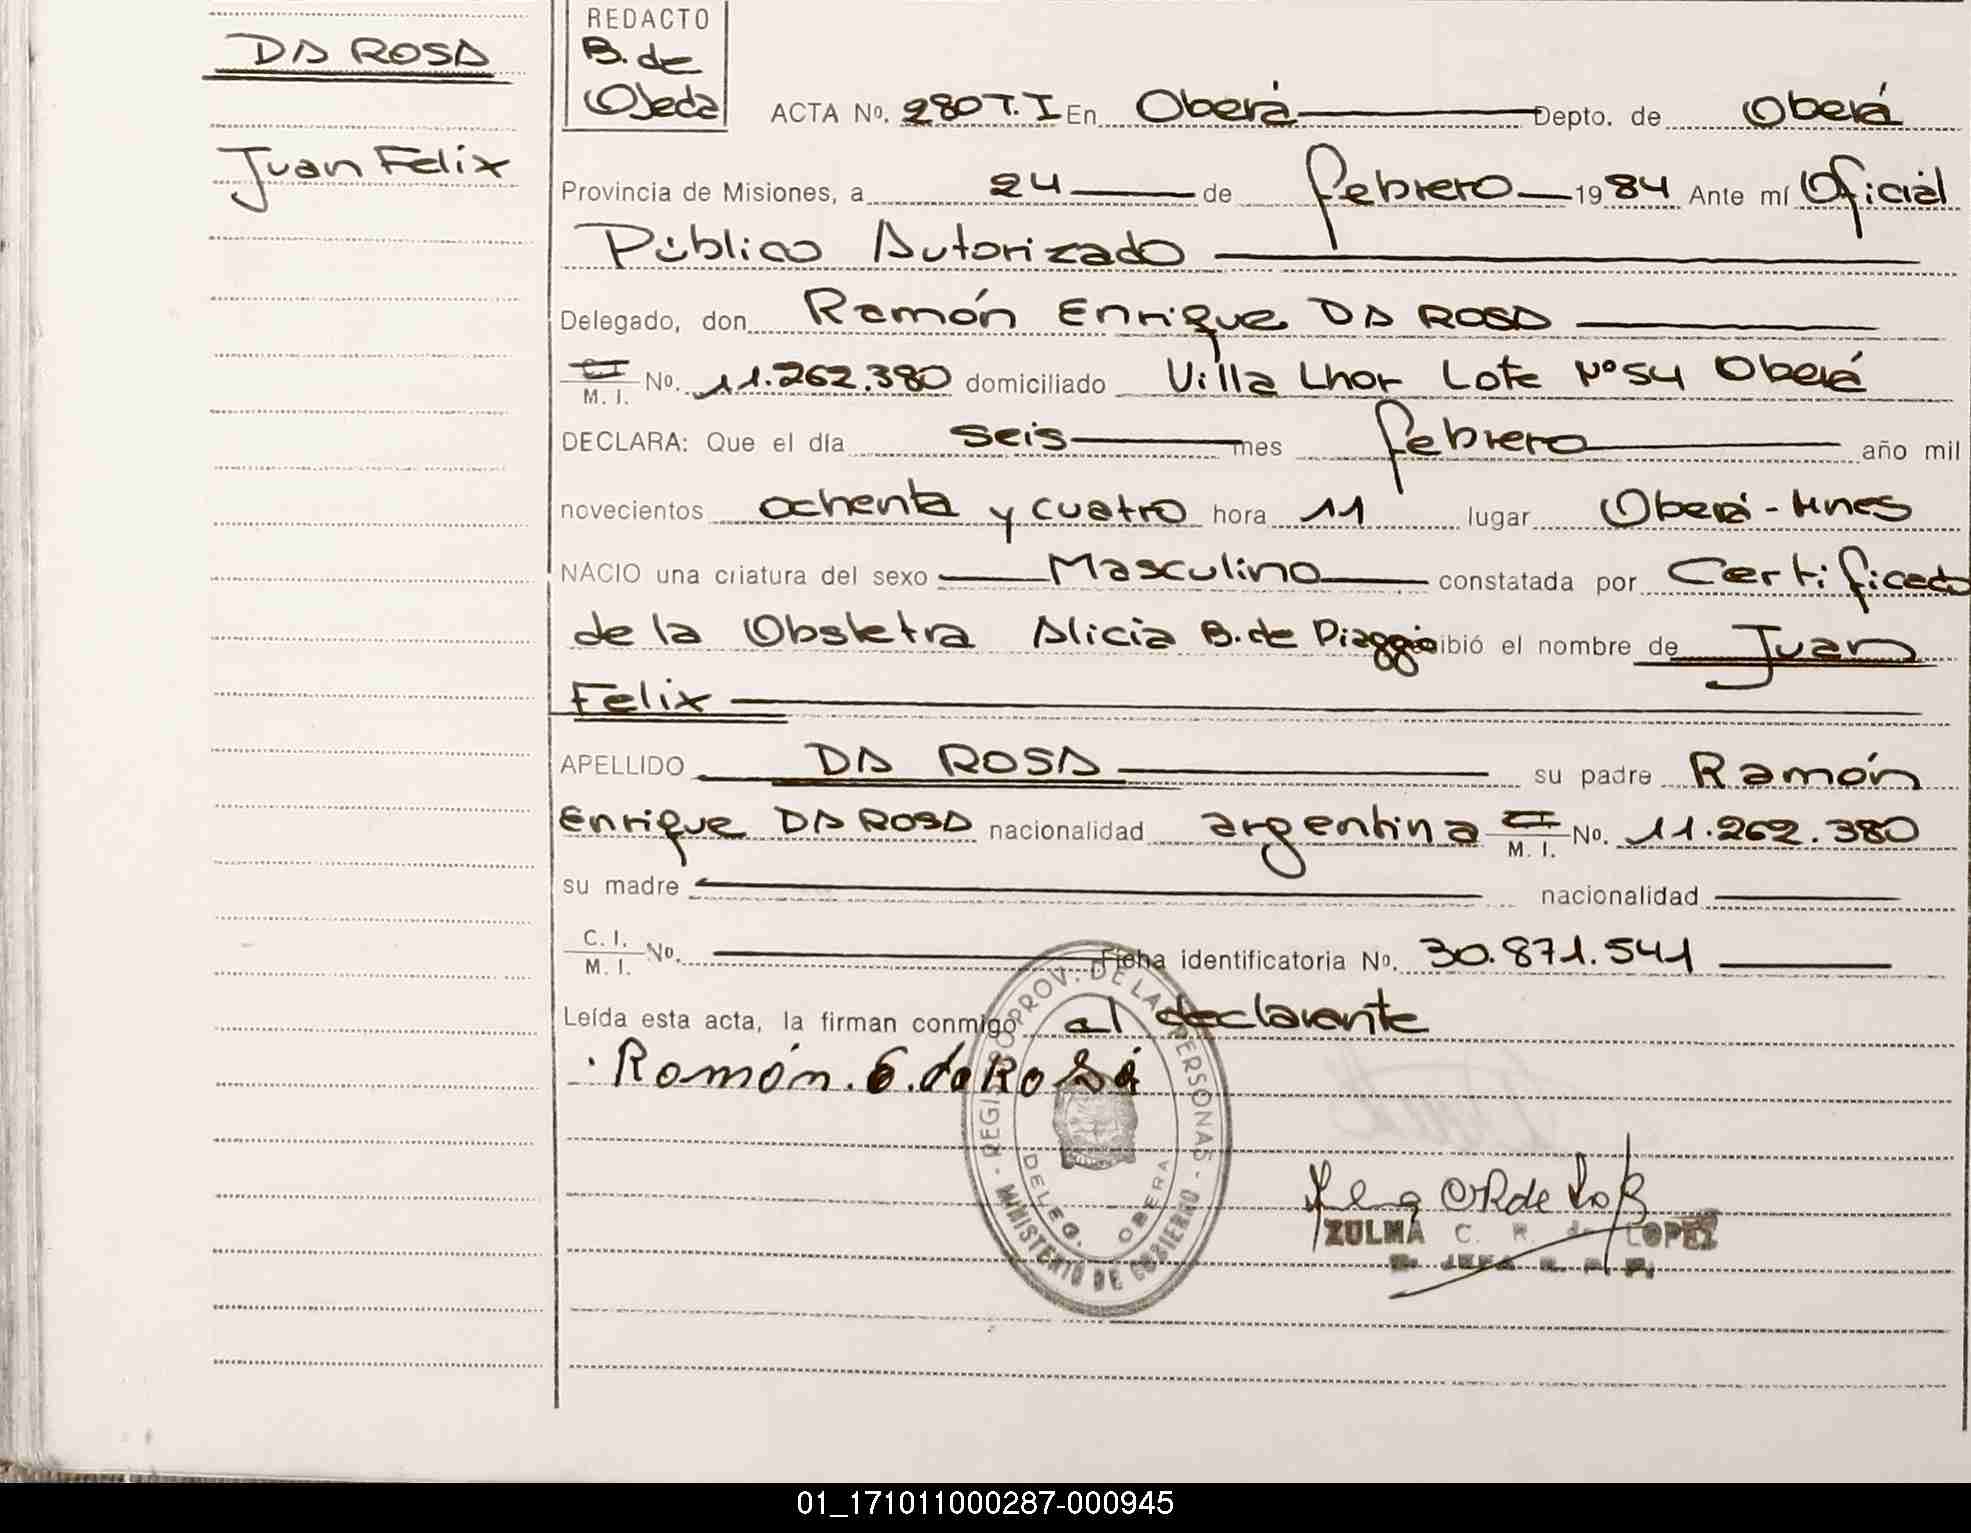 DA ROSA
Juan Felix
REDACTO
B. de
Ojeda
ACTA No. 280 T. I En Oberá Depto. de Oberá
Provincia de Misiones, a 24 de febrero 1984 Ante mí Oficial
Público Autorizado
Delegado, don Ramón Enrique DA ROSA
C. I.
M. I. No. 11.262.380 domiciliado Villa Lhor Lote Nº 54 Oberá
DECLARA: Que el día seis mes febrero año mil
novecientos ochenta y cuatro hora 11 lugar Oberá - Mnes
NACIO una criatura del sexo Masculino constatada por Certificado
de la Obstetra Alicia B. de Piaggio ibió el nombre de Juan
Felix
APELLIDO DA ROSA su padre Ramón
Enrique DA ROSA nacionalidad argentina M. I. No. 11.262.380
su madre nacionalidad
C. I.
M. I. No. Ficha identificatoria No. 30.871.541
Leída esta acta, la firman conmigo al declarante
Ramón. E. da Rosa
REGISTRO PROV. DE LAS PERSONAS
DELEG. OBERA
MINISTERIO DE GOBIERNO
ZULMA C. R. de LOPEZ
01_171011000287-000945